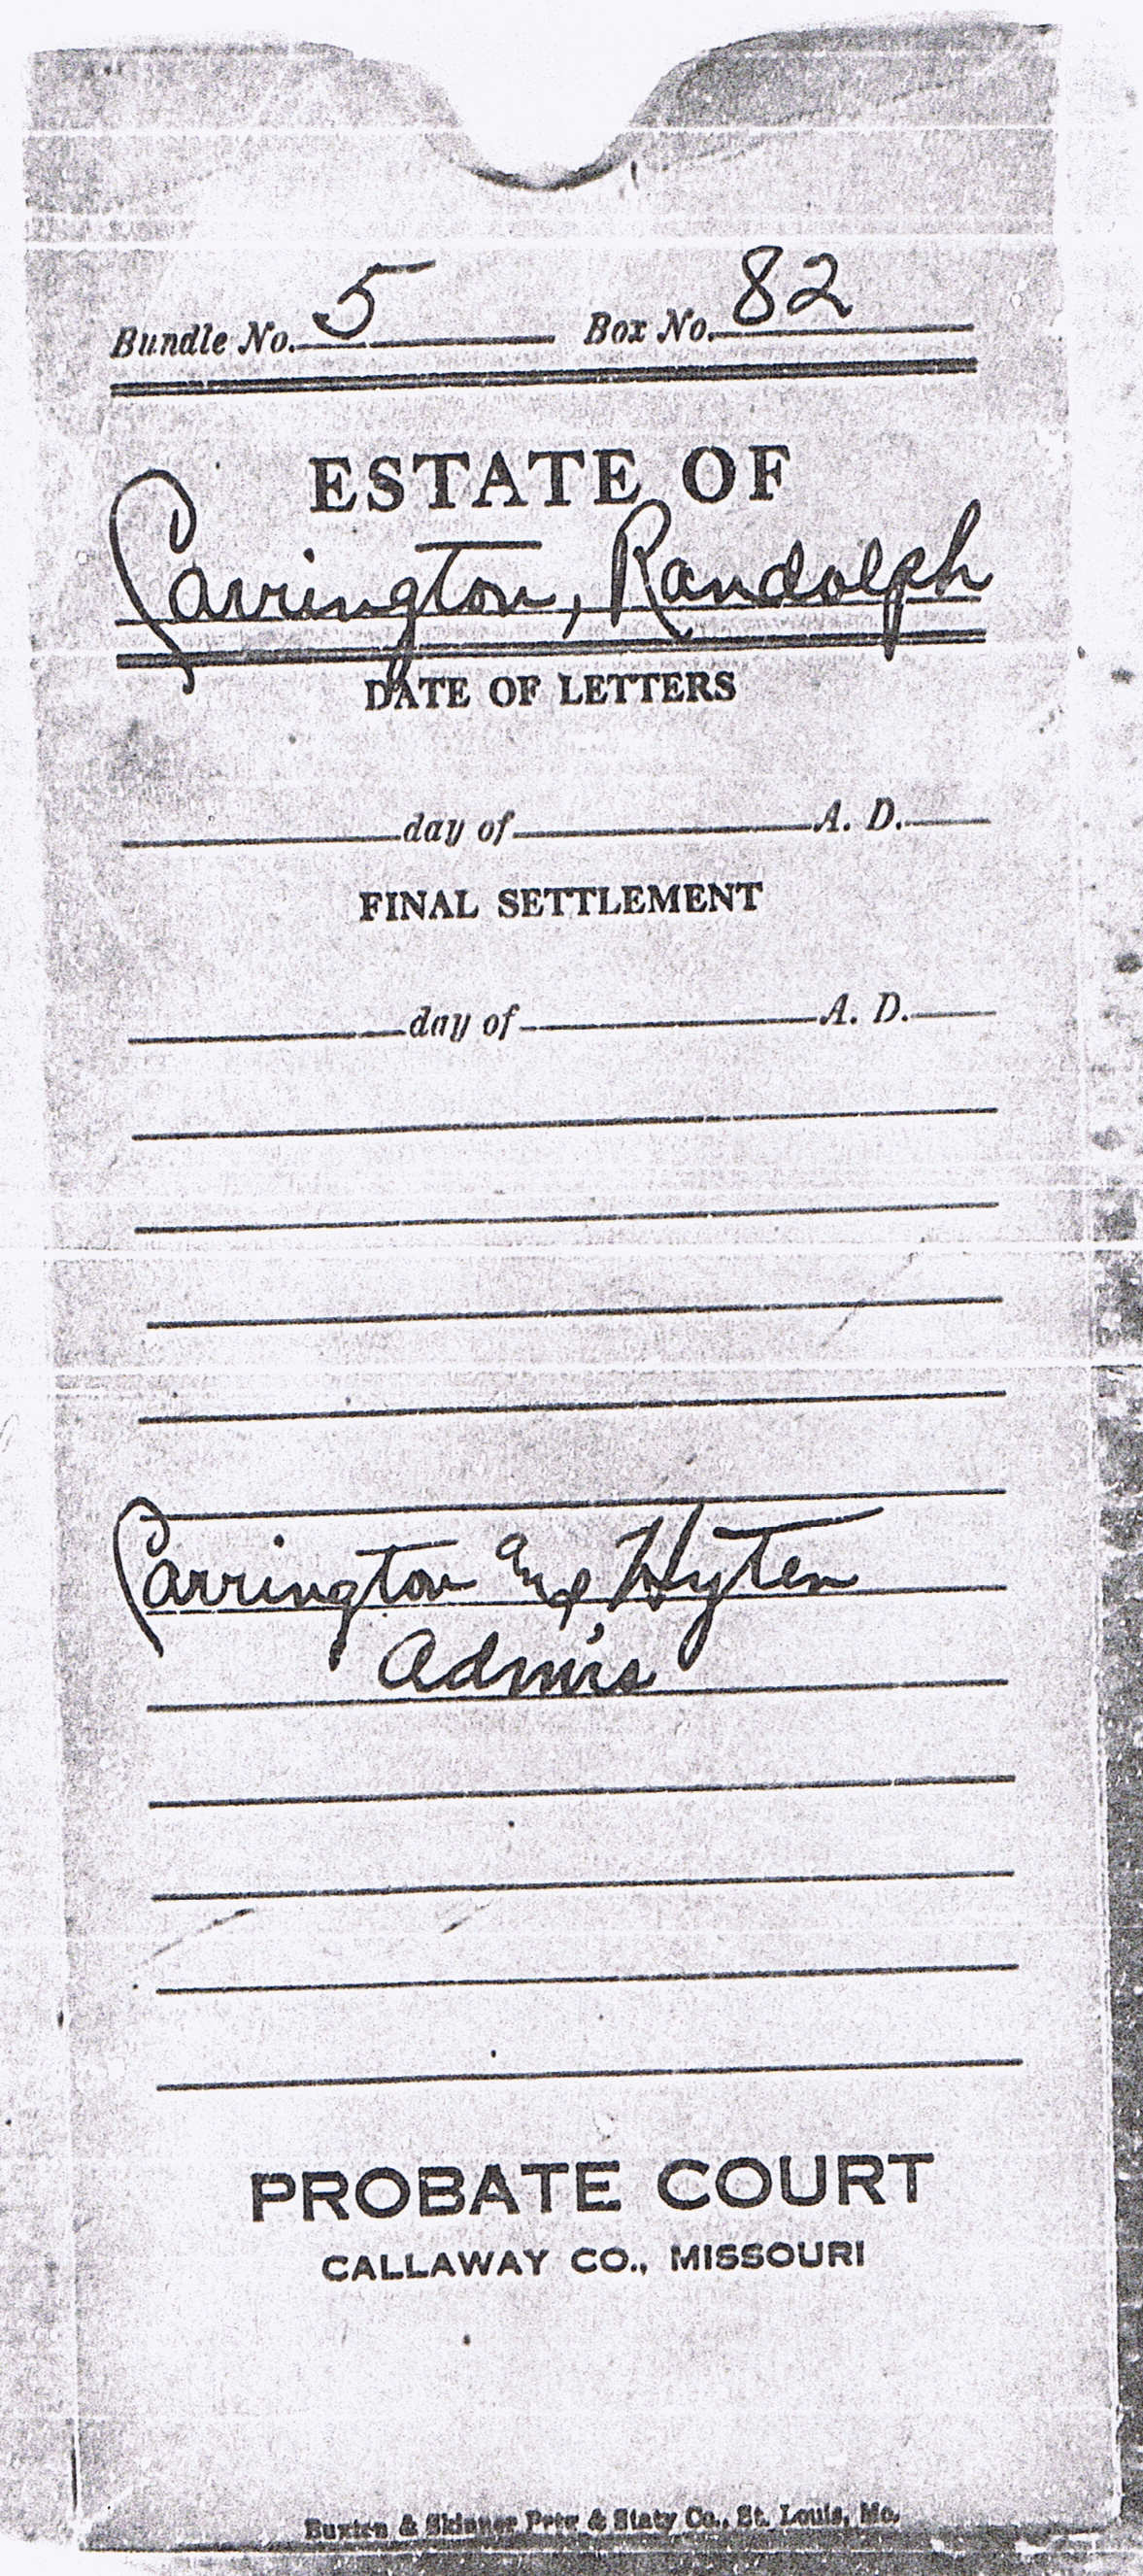 Bundle No. 5 Box No. 82
ESTATE OF
Carrington, Randolph
DATE OF LETTERS
day of A. D.
FINAL SETTLEMENT
day of A. D.
Carrington and Hyten
Adm'rs
PROBATE COURT
CALLAWAY CO., MISSOURI
Buxton & Skinner Prtr & Staty Co., St. Louis, Mo.